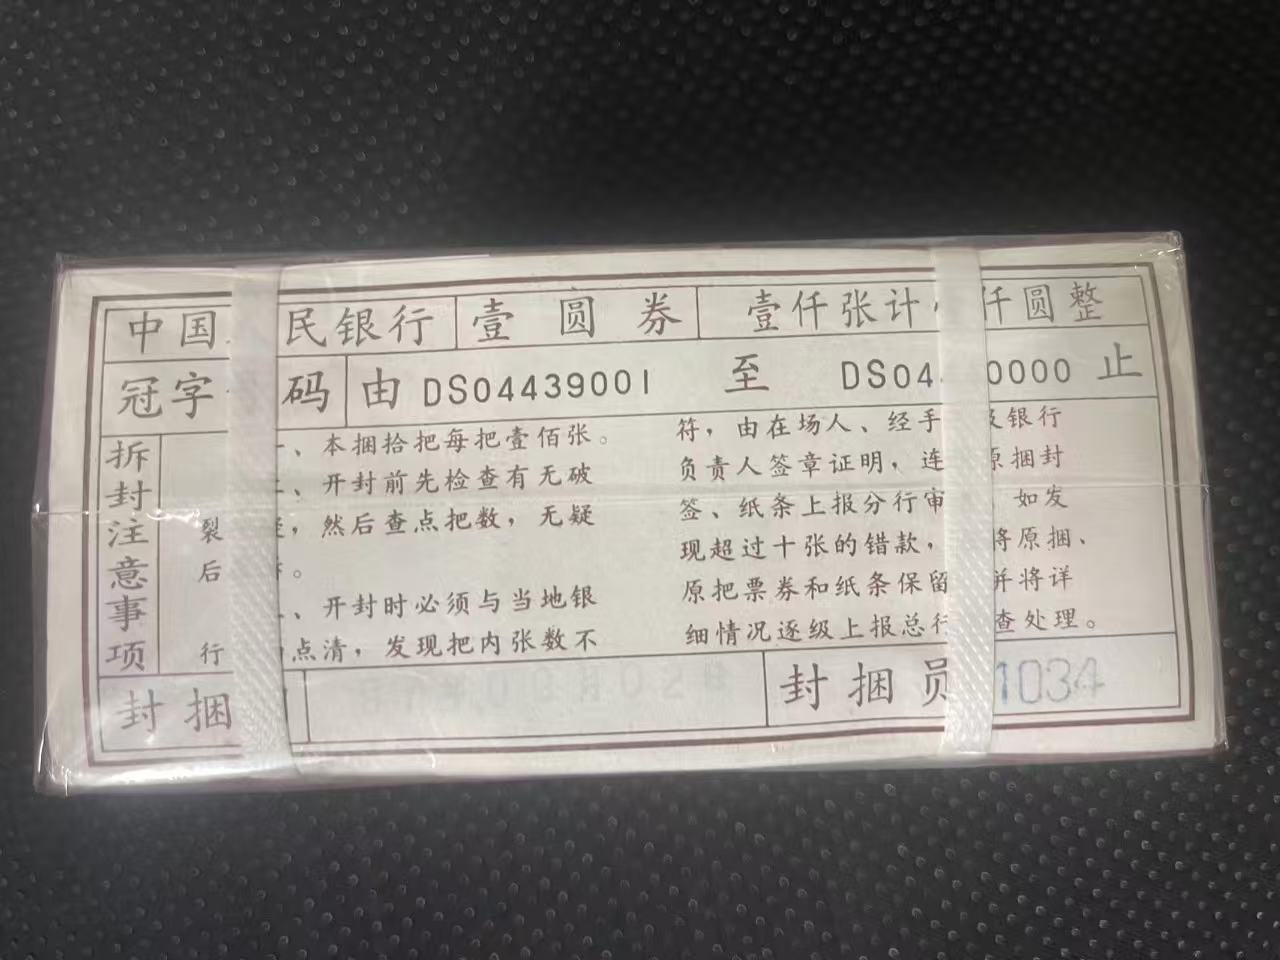 中国 民银行 壹圆券 壹仟张计 仟圆整
冠字 码 由 DS04439001 至 DS04 0000 止
拆封注意事项
、本捆拾把每把壹佰张。
、开封前先检查有无破
裂 ,然后查点把数,无疑
后 。
、开封时必须与当地银
行 点清,发现把内张数不
符,由在场人、经手 及银行
负责人签章证明,连 原捆封
签、纸条上报分行审 如发
现超过十张的错款, 将原捆、
原把票券和纸条保留 并将详
细情况逐级上报总行 查处理。
封捆 封捆员 1034